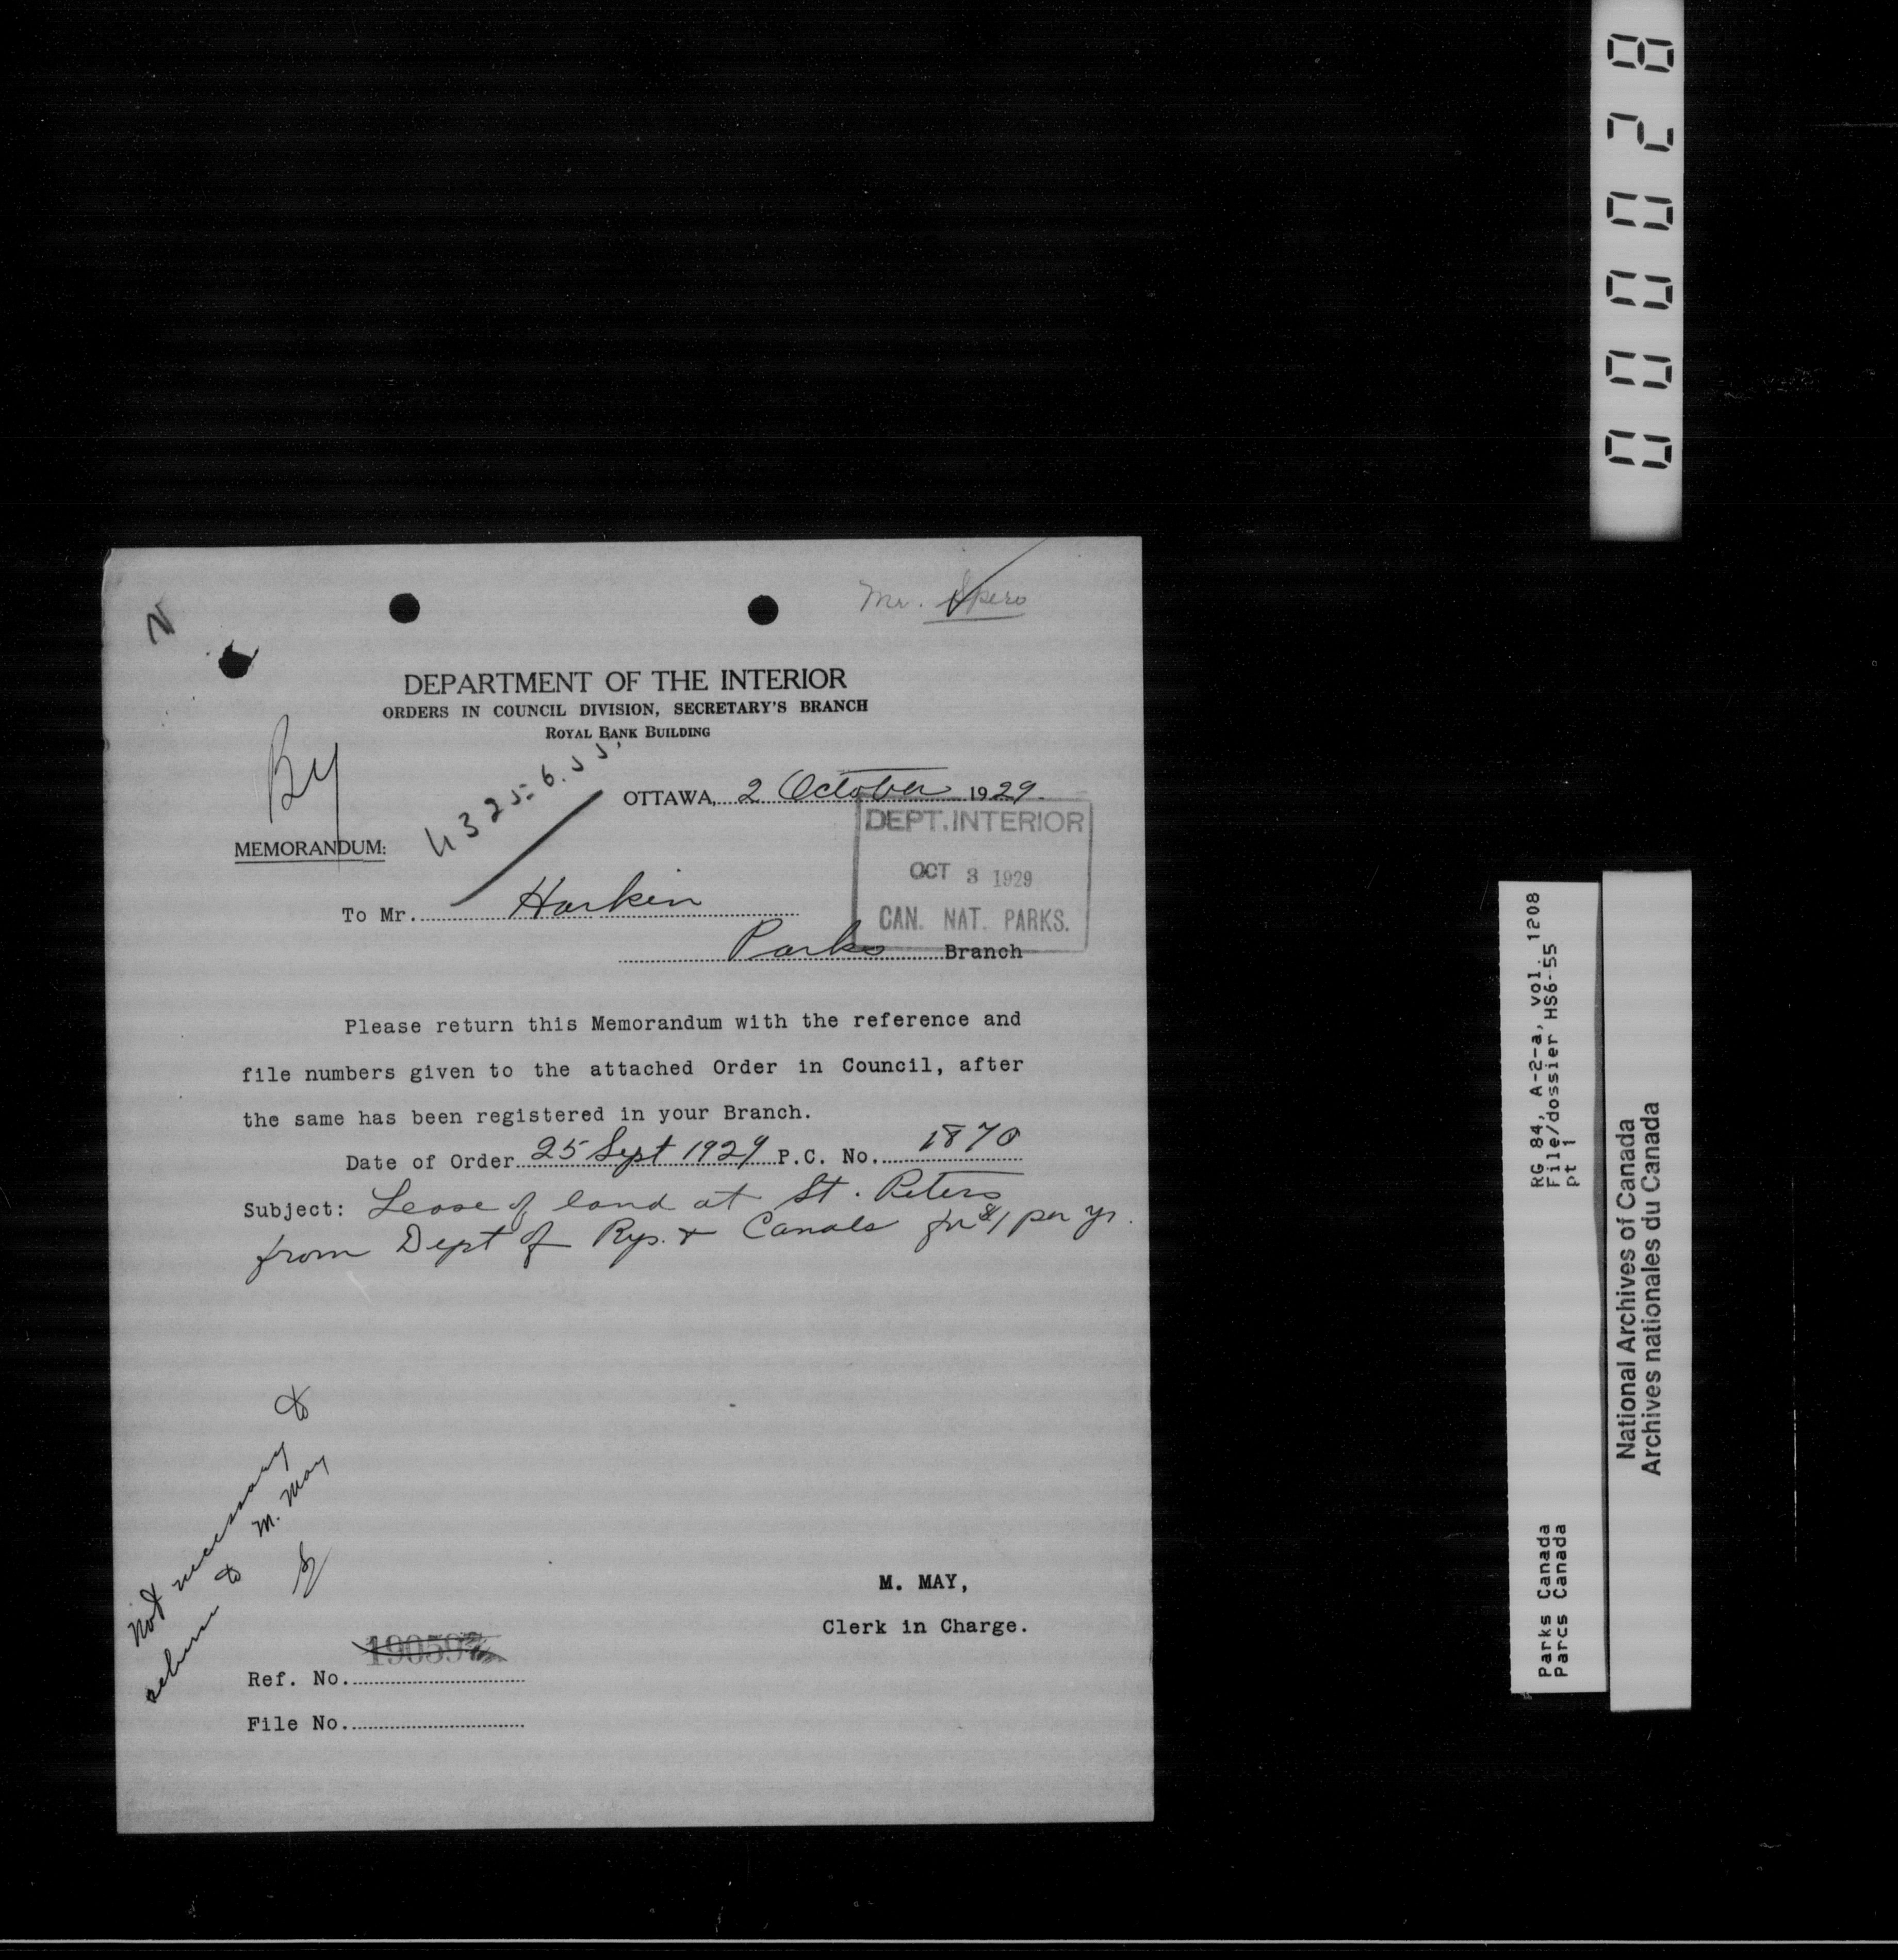 000028
Mr. Spero
DEPARTMENT OF THE INTERIOR
ORDERS IN COUNCIL DIVISION, SECRETARY'S BRANCH
ROYAL BANK BUILDING
By
OTTAWA, 2 October 1929.
MEMORANDUM:
DEPT. INTERIOR
OCT 3 1929
CAN. NAT. PARKS.
To Mr. Harkin
Parks Branch
Please return this Memorandum with the reference and
file numbers given to the attached Order in Council, after
the same has been registered in your Branch.
Date of Order 25 Sept 1929 P.C. No. 1870
Subject: Lease of land at St. Peters
from Dept of Rys. & Canals for $1 per yr.
Not necessary to
return to M. May
M. MAY,
Clerk in Charge.
Ref. No.
File No.
RG 84, A-2-a, vol. 1208
File/dossier HS6-55
pt 1
Parks Canada
Parcs Canada
National Archives of Canada
Archives nationales du Canada